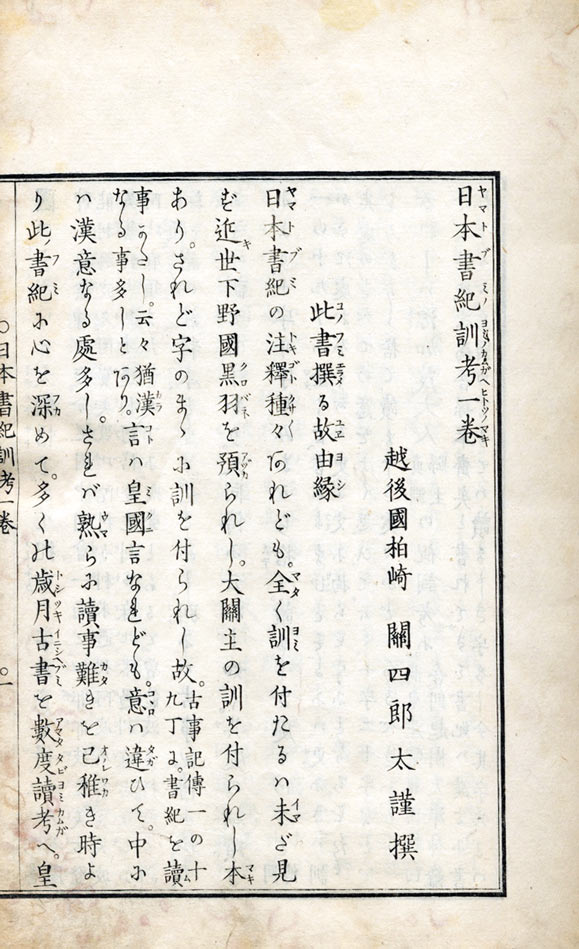 日本書紀訓考一卷
越後國柏崎 關四郎太謹撰
此書撰る故由縁
日本書紀の注釋種々あれども。全く訓を付たるハ未ダ見
ず近世下野國黒羽を預られし。大關主の訓を付られし本
あり。されど字のまゝに訓を付られし故。古事記傳一の十九丁に。書紀を讀
事かたし。云々猶漢言ハ皇國言なれども。意ハ違ひて。中に
なる事多しとあり。
ハ漢意なる處多し。されバ熟らに讀事難きを已稚き時よ
り此ノ書紀に心を深めて。多くの歳月古書を數度讀考へ。皇
○日本書紀訓考一卷 ○一